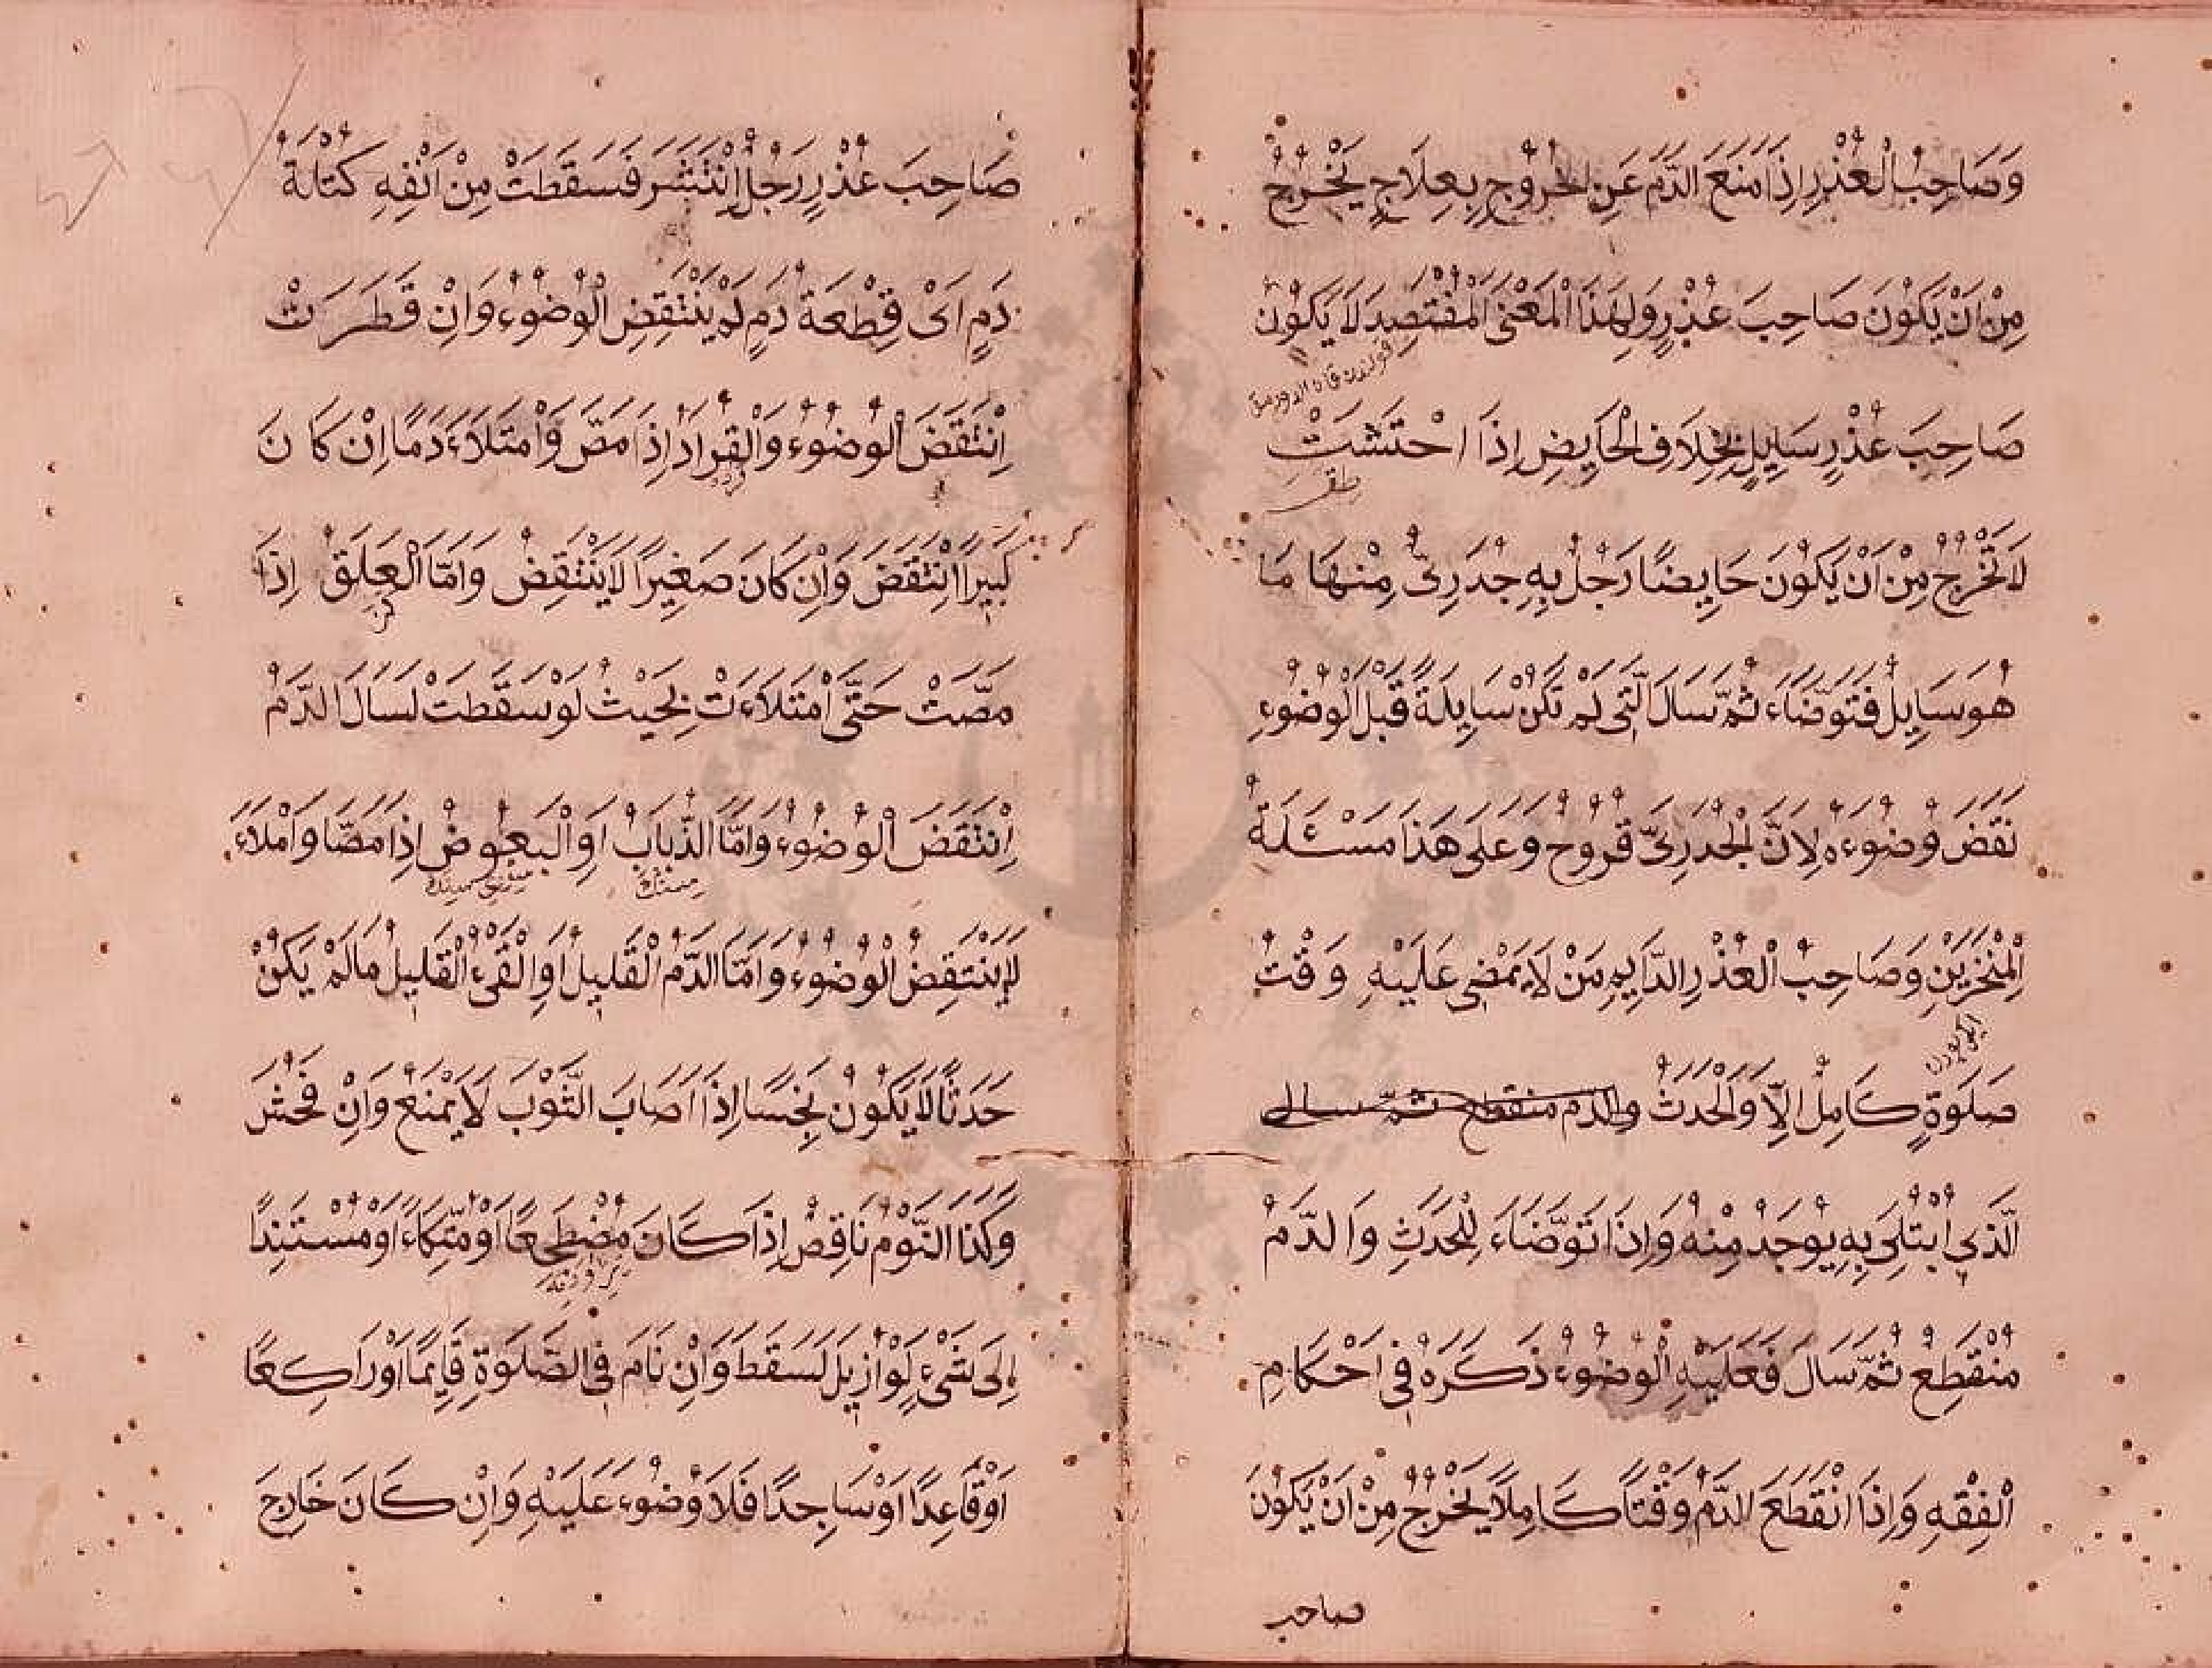 وَصَاحِبُ الْعُذْرِ اِذَا مَنَعَ الدَّمَ عَنِ الْخُرُوْجِ بِعِلَاجٍ يَخْرُجُ
مِنْ اَنْ يَكُوْنَ صَاحِبَ عُذْرٍ وَلِهٰذَا الْمَعْنَى الْمُفْتَصِدُ لَا يَكُوْنُ
صَاحِبَ عُذْرٍ سَايِلٍ بِخِلَافِ الْحَايِضِ اِذَا احْتَشَتْ
لَا تَخْرُجُ مِنْ اَنْ يَكُوْنَ حَايِضًا رَجُلٌ بِهٖ جُدَرِىٌّ مِنْهَا مَا
هُوَ سَايِلٌ فَتَوَضَّاءَ ثُمَّ سَالَ الَّتِى لَمْ تَكُنْ سَايِلَةً قَبْلَ الْوُضُوْءِ
نَقَضَ وُضُوْءَهُ لِاَنَّ الْجُدَرِىَّ قُرُوْحٌ وَعَلٰى هٰذَا مَسْئَلَةُ
الْمِنْخَرَيْنِ وَصَاحِبُ الْعُذْرِ الدَّايِمِ مَنْ لَا يَمْضِى عَلَيْهِ وَقْتُ
صَلٰوةٍ كَامِلٌ اِلَّا وَالْحَدَثُ والدم منقطع ثمّ سال
الَّذِى ابْتُلِىَ بِهٖ يُوْجَدُ مِنْهُ وَاِذَا تَوَضَّاءَ لِلْحَدَثِ وَالدَّمُ
مُنْقَطِعٌ ثُمَّ سَالَ فَعَلَيْهِ الْوُضُوْءُ ذَكَرَهُ فِى اَحْكَامِ
الْفِقْهِ وَاِذَا انْقَطَعَ الدَّمُ وَقْتًا كَامِلًا يَخْرُجُ مِنْ اَنْ يَكُوْنَ
صاحب
صَاحِبَ عُذْرٍ رَجُلٌ اِنْتَثَرَ فَسَقَطَتْ مِنْ اَنْفِهٖ كُتْلَةُ
دَمٍ اَىْ قِطْعَةُ دَمٍ لَمْ يَنْتَقِضِ الْوُضُوْءُ وَاِنْ قَطَرَتْ
اِنْتَقَضَ الْوُضُوْءُ وَالْقُرَادُ اِذَا مَصَّ وَامْتَلَاءَ دَمًا اِنْ كَانَ
كَبِيْرًا اِنْتَقَضَ وَاِنْ كَانَ صَغِيْرًا لَا يَنْتَقِضُ وَاَمَّا الْعَلَقُ اِذَا
مَصَّتْ حَتّٰى امْتَلَاءَتْ بِحَيْثُ لَوْ سَقَطَتْ لَسَالَ الدَّمُ
اِنْتَقَضَ الْوُضُوْءُ وَاَمَّا الذُّبَابُ اَوِ الْبَعُوْضُ اِذَا مَصَّا وَامْلَاءَ
لَا يَنْتَقِضُ الْوُضُوْءُ وَاَمَّا الدَّمُ الْقَلِيْلُ اَوِ الْقَىْءُ الْقَلِيْلُ مَا لَمْ يَكُنْ
حَدَثًا لَا يَكُوْنُ نَجِسًا اِذَا اَصَابَ الثَّوْبَ لَا يَمْنَعُ وَاِنْ فَحُشَ
وَكَذَا النَّوْمُ نَاقِضٌ اِذَا كَانَ مُضْطَجِعًا اَوْ مُتَّكِاءً اَوْ مُسْتَنِدًا
اِلٰى شَىْءٍ لَوْ اُزِيْلَ لَسَقَطَ وَاِنْ نَامَ فِى الصَّلٰوةِ قَايِمًا اَوْ رَاكِعًا
اَوْ قَاعِدًا اَوْ سَاجِدًا فَلَا وُضُوْءَ عَلَيْهِ وَاِنْ كَانَ خَارِجَ